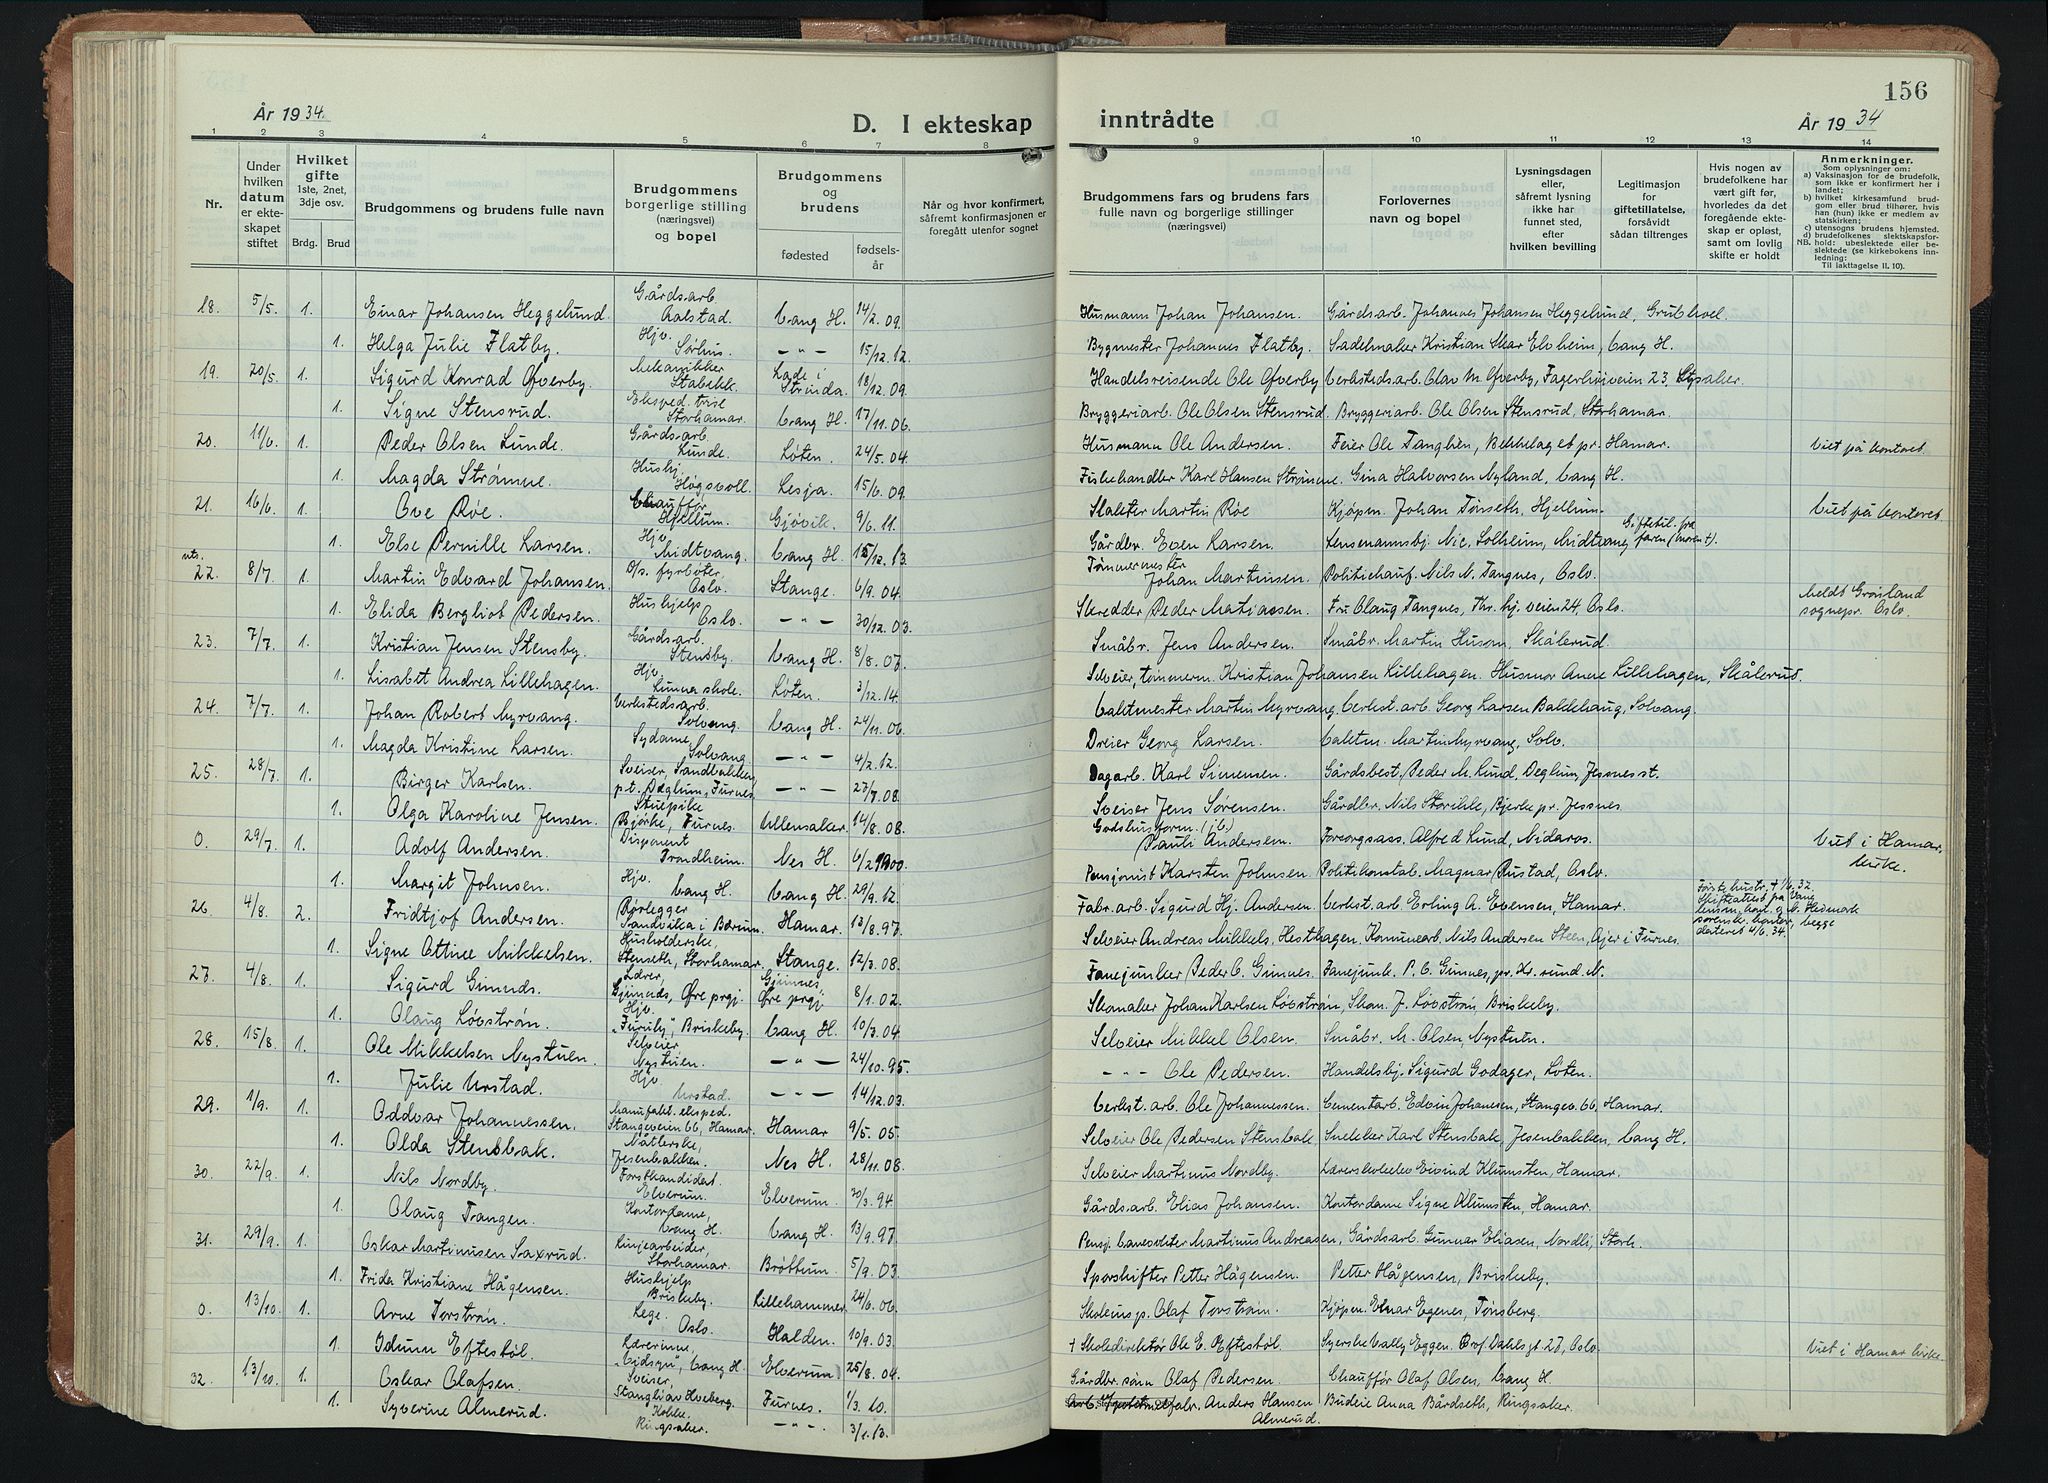 År 1934.
D. I ekteskap
1 2 3 4 5 6 7 8
Nr.
Under hvilken datum er ekteskapet stiftet
Hvilket gifte 1ste, 2net, 3dje osv.
Brdg. Brud
Brudgommens og brudens fulle navn
Brudgommens borgerlige stilling (næringsvei) og bopel
Brudgommens og brudens
fødested
fødsels-år
Når og hvor konfirmert, såfremt konfirmasjonen er foregått utenfor sognet
18. 5/5 1. Einar Johansen Heggelund. Gårdsarb. Aalstad. Vang H. 14/2. 09.
1. Helga Julie Flatby. Hjv. Sørhus. — " — 15/12. 12.
19. 20/5 1. Sigurd Konrad Øfverby. Mekanikker Stabekk. Lade i Strinda. 18/12. 09.
1. Signe Stensrud. Eksped. trise Storhamar. Vang H. 17/11. 06.
20. 11/6. 1. Peder Olsen Lunde. Gårdsarb. Lunde. Løten. 24/5. 04.
1. Magda Strømne. Hushj. Høgsvoll. Lesja. 15/6. 09.
21. 16/6. 1. Ove Røe. Chauffør Hjellum. Gjøvik. 9/6. 11.
1. Else Pernille Larsen. Hjv. Midtvang. Vang H. 15/12. 13.
uts. 22. 8/7. 1. Martin Edvard Johansen. D/s. fyrbøter Oslo. Stange. 6/9. 04.
1. Elida Bergliot Pedersen. Hushjelp Oslo. — " — 30/12. 03.
23. 7/7. 1. Kristian Jensen Stensby. Gårdsarb. Stensby. Vang H. 8/8. 07.
1. Lisabet Andrea Lillehagen. Hjv. Lunna skole. Løten. 3/12. 14.
24. 7/7. 1. Johan Robert Myrvang. Verkstedsarb. Solvang. Vang H. 24/11. 06.
1. Magda Kristine Larsen. Sydame, Solvang — " — 4/2. 12.
25. 28/7. 1. Birger Karlsen. Sveiser, Sandbakken, p.t. Deglum, Furnes. — " — 27/7. 08.
1. Olga Karoline Jensen. Stuepike Bjørke, Furnes. Ullensaker. 14/8. 08.
0. 29/7. 1. Adolf Andersen. Disponent Trondheim. Nes H. 6/2 1900.
1. Margit Johnsen. Hjv. Vang H. Vang H. 29/9. 12.
26. 4/8. 2. Fridtjof Andersen. Rørlegger Sandvika i Bærum. Hamar. 13/8. 97.
1. Signe Ottine Mikkelsen. Husholderske, Stenseth, Storhamar. Stange. 12/3. 08.
27. 4/8. 1. Sigurd Gimnes. Lærer, Gjimnes, Øre prgj. Gjimnes, Øre prgj. 8/1. 02.
1. Olaug Løvstrøn. Hjv. "Furuly", Briskeby. Vang H. 10/3. 04.
28. 15/8. 1. Ole Mikkelsen Nystuen. Selveier Nystuen. — " — 24/10. 95.
1. Julie Urstad. Hjv Urstad. — " — 14/12. 03.
29. 1/9. 1. Oddvar Johannessen. Manufakt. eksped. Stangeveien 66, Hamar. Hamar 9/5. 05.
1. Olda Stensbak. Nåtlerske, Jesenbakken. Nes H. 28/11. 08.
30. 22/9. 1. Nils Nordby. Forstkandidat. Elverum. Elverum. 20/3. 94.
1. Olaug Tangen. Kontordame, Vang H. Vang H. 13/9. 97.
31. 29/9. 1. Oskar Martinusen Saxrud. Linjearbeider, Storhamar. Brøttum. 5/9. 03.
1. Frida Kristiane Hågensen. Hushjelp Briskeby. Lillehammer. 24/6. 06.
0. 13/10. 1. Arne Torstrøn. Lege. Oslo. Halden. 10/9. 03.
1. Idunn Eftestøl. Lærerinne, "Vidsyn", Vang H. Elverum 25/8. 04.
32. 13/10. 1. Oskar Olafsen. Sveiser, Stangli av Hveberg. Furnes. 1/3. 10.
1. Syverine Almerud. Kokke. Ringsaker. — " — 3/1. 13.
156
inntrådte
År 1934
9 10 11 12 13 14
Brudgommens fars og brudens fars fulle navn og borgerlige stillinger (næringsvei)
Forlovernes navn og bopel
Lysningsdagen eller, såfremt lysning ikke har funnet sted, efter hvilken bevilling
Legitimasjon for giftetillatelse, forsåvidt sådan tiltrenges
Hvis nogen av brudefolkene har vært gift før, hvorledes da det foregående ekteskap er opløst, samt om lovlig skifte er holdt
Anmerkninger. Som oplysninger om:
a) Vaksinasjon for de brudefolk, som ikke er konfirmert her i landet;
b) hvilket kirkesamfund brudgom eller brud tilhører, hvis han (hun) ikke er medlem av statskirken;
c) utensogns brudens hjemsted.
d) brudefolkenes slektskapsforhold: ubeslektede eller beslektede (se kirkebokens innledning:
NB. Til iakttagelse II. 10).
Husmann Johan Johansen. Gårdsarb. Johannes Johansen Heggelund, Grubhoel.
Bygmester Johannes Flatby. Sadelmaker Kristian Skar Elvheim, Vang H.
Handelsreisende Ole Øfverby Verkstedsarb. Olav M. Øfverby, Fagerhøiveien 23, Lysaker.
Bryggeriarb. Ole Olsen Stensrud. Bryggeriarb. Ole Olsen Stensrud, Storhamar.
Husmann Ole Andersen. Feier Ole Tanglien, Bekkelaget pr. Hamar. Viet på kontoret
Fiskehandler Karl Hansen Strømne. Gina Halvorsen Nyland, Vang H.
Slakter Martin Røe Kjøpm. Johan Tønseth, Hjellum. Viet på kontoret
Gårdbr. Even Larsen. Lensmannsbj. Nic. Solheim, Midtvang Giftetil. fra faren (moren +).
Tømmermester Johan Martinsen. Politichauf. Nils N. Tangnes, Oslo.
Skredder Peder Matiassen. Fru Olaug Tangnes, Thr. hj. veien 24, Oslo. Meldt Grønland sognepr. Oslo.
Småbr. Jens Andersen. Småbr. Martin Husom, Skålerud.
Selveier, tømmerm. Kristian Johansen Lillehagen. Husmor Anne Lillehagen, Skålerud.
Vaktmester Martin Myrvang. Verkst. arb. Georg Larsen Baldehaug, Solvang.
Dreier Georg Larsen. Vaktm. Martin Myrvang, Solv.
Dagarb. Karl Simensen. Gårdsbest. Peder M. Lund, Deglum, Jesnes st.
Sveiser Jens Sørensen. Gårdbr. Nils Storihle, Bjerke pr. Jessnes.
Godshusform. (jb.) Pauli Andersen. Forsorgsass. Alfred Lund, Nidaros. Viet i Hamar kirke.
Pensjonist Karsten Johnsen Politikonstab. Magnar Rustad, Oslo.
Fabr. arb. Sigurd Hj. Andersen Verkst. arb. Erling A. Evensen, Hamar. Første hustr. + 1/6. 32. Skifteattest på Vang lensm. kont. og N. Hedmark sorensk. kontor, begge datert 4/6. 34.
Selveier Andreas Mikkels. Hesthagen. Kommunearb. Nils Andersen Steen, Ajer i Furnes.
Fanejunker Peder C. Gimnes. Fanejunk. P. C. Gimnes, pr. Kr. sund N.
Skomaker Johan Karlsen Løvstrøn Skom. J. Løvstrøn, Briskeby.
Selveier Mikkel Olsen. Småbr. M. Olsen, Nystuen.
— " — Ole Pedersen. Handelsbj. Sigurd Godager, Løten.
Verkst. arb. Ole Johannessen. Cementarb. Edvin Johannesen, Stangev. 66, Hamar.
Selveier Ole Pedersen Stensbak Snekker Karl Stensbak, Jesenbakken, Vang H.
Selveier Martinus Nordby. Lærerskoleelev Eivind Klumsten, Hamar.
Gårdsarb. Elias Johansen. Kontordame Signe Klumsten, Hamar.
Pensj. banevokter Martinus Andreasen, Gårdsarb. Gunnar Eliasen, Nordli, Storh.
Sporskifter Petter Hågensen. Petter Hågensen, Briskeby.
Skoleinsp. Olaf Torstrøm. Kjøpm. Einar Egenes, Tønsberg.
+ Skoledirektør Ole E. Eftestøl. Syerske Vally Eggen. Prof. Dahls gt. 27, Oslo. Viet i Hamar kirke.
Gårdbr. sønn Olaf Pedersen. Chauffør Olaf Olsen, Vang H.
Arb. v/potetmelfabr. Anders Hansen Almerud. Budeie Anna Bårdseth, Ringsaker.